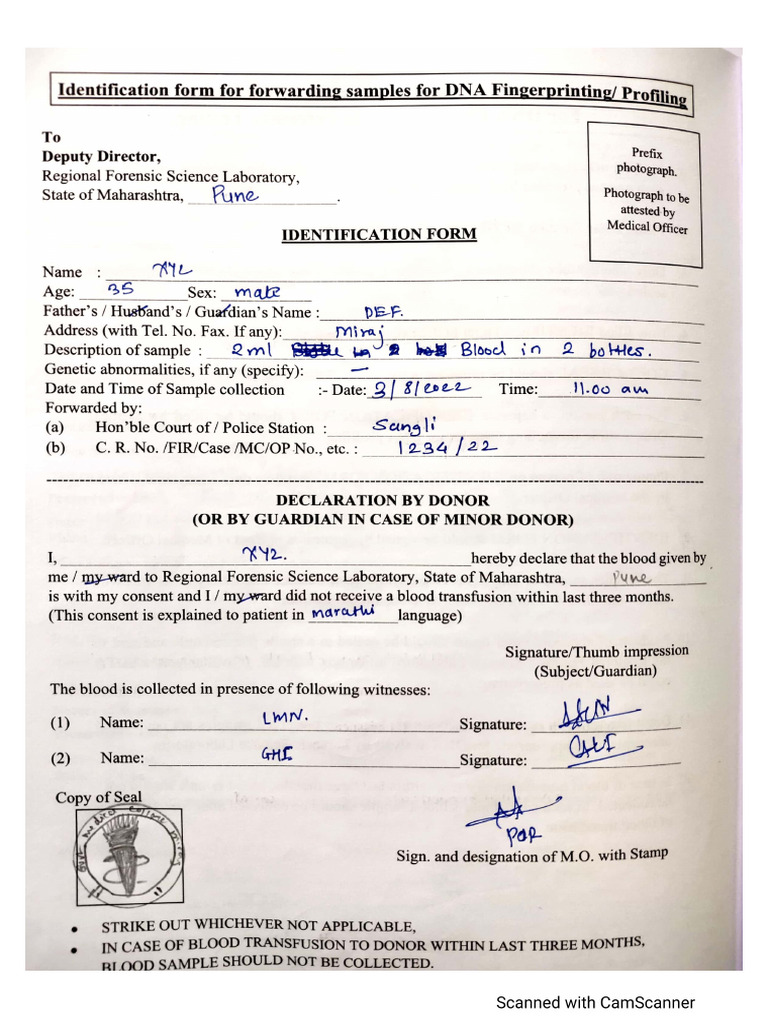 Identification form for forwarding samples for DNA Fingerprinting/ Profiling
To
Deputy Director,
Regional Forensic Science Laboratory,
State of Maharashtra, Pune.
Prefix
photograph.
Photograph to be
attested by
Medical Officer
IDENTIFICATION FORM
Name : XYZ
Age: 35 Sex: male
Father's / Husband's / Guardian's Name : DEF.
Address (with Tel. No. Fax. If any): Miraj
Description of sample : 2ml Blood in 2 bottles.
Genetic abnormalities, if any (specify): —
Date and Time of Sample collection :- Date: 3/8/2022 Time: 11.00 am
Forwarded by:
(a) Hon'ble Court of / Police Station : Sangli
(b) C. R. No. /FIR/Case /MC/OP No., etc. : 1234/22
DECLARATION BY DONOR
(OR BY GUARDIAN IN CASE OF MINOR DONOR)
I, XYZ. hereby declare that the blood given by
me / my ward to Regional Forensic Science Laboratory, State of Maharashtra, Pune
is with my consent and I / my ward did not receive a blood transfusion within last three months.
(This consent is explained to patient in marathi language)
Signature/Thumb impression
(Subject/Guardian)
The blood is collected in presence of following witnesses:
(1) Name: LMN. Signature:
(2) Name: GHI Signature:
Copy of Seal
PQR
Sign. and designation of M.O. with Stamp
• STRIKE OUT WHICHEVER NOT APPLICABLE,
• IN CASE OF BLOOD TRANSFUSION TO DONOR WITHIN LAST THREE MONTHS,
BLOOD SAMPLE SHOULD NOT BE COLLECTED.
Scanned with CamScanner